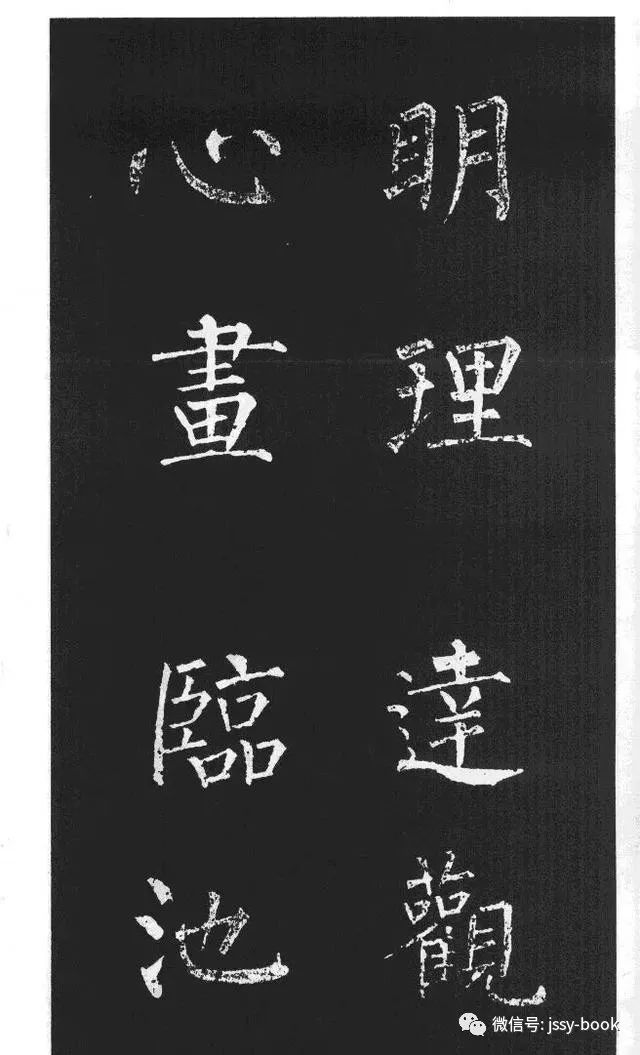 明理達觀
心畫臨池
微信号: jssy-book